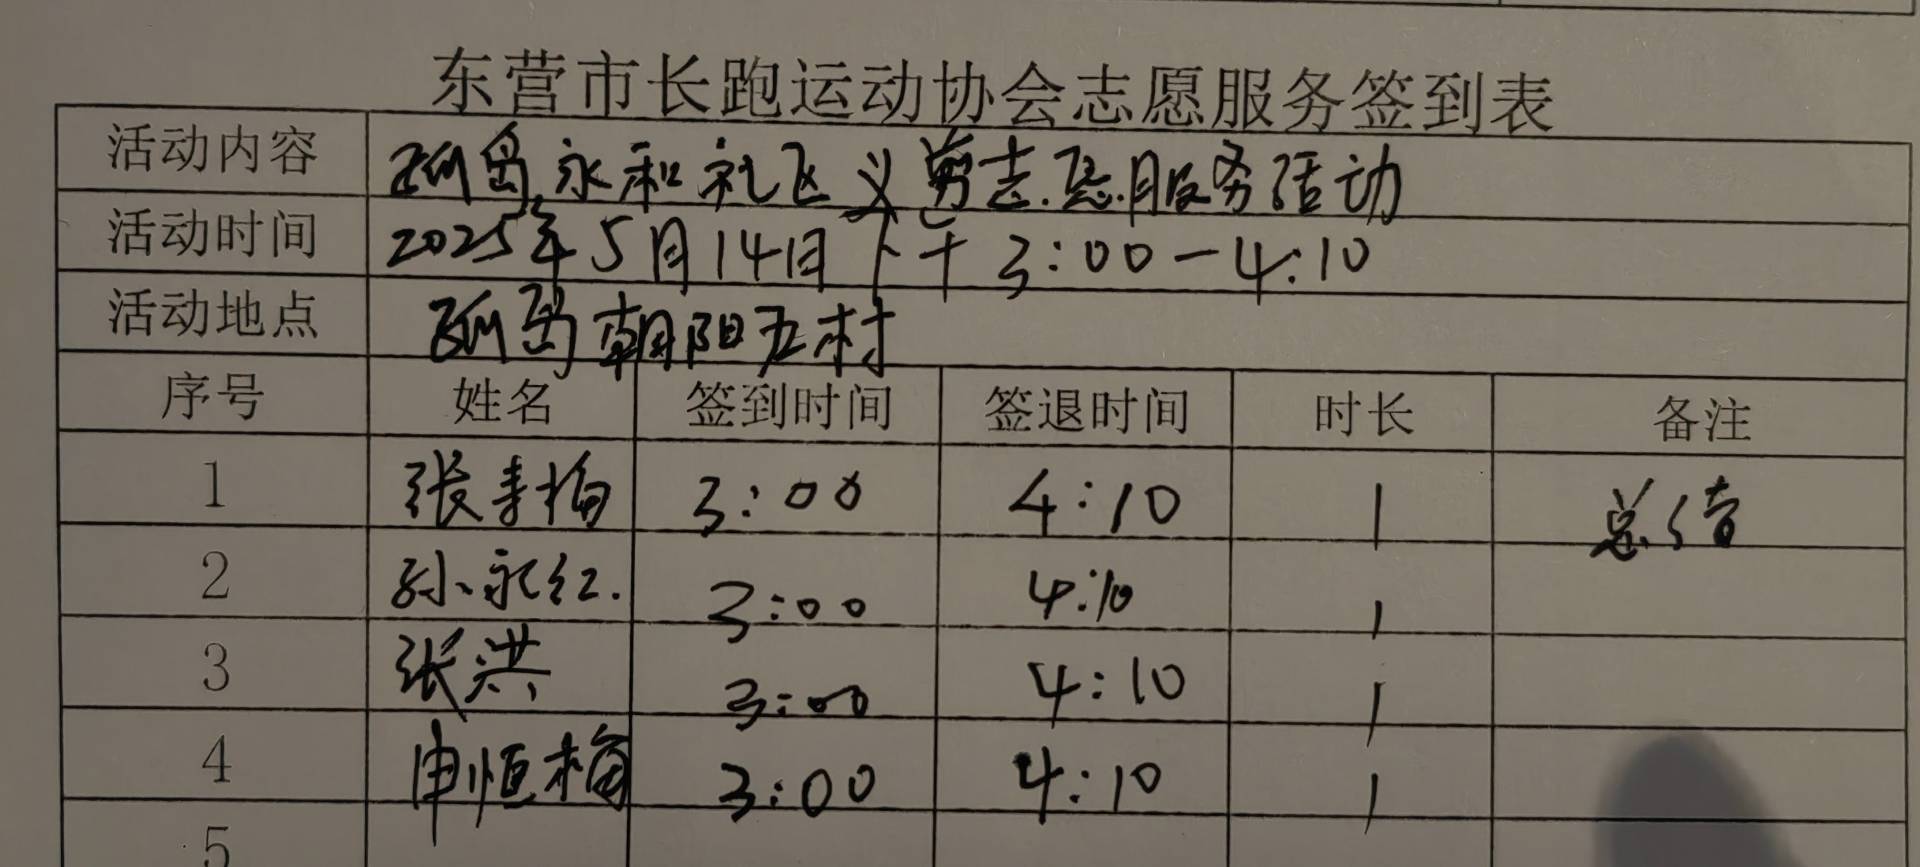 东营市长跑运动协会志愿服务签到表
活动内容 孤岛永和社区义剪志愿服务活动
活动时间 2025年5月14日下午3:00-4:10
活动地点 孤岛朝阳五村
序号 姓名 签到时间 签退时间 时长 备注
1 张春梅 3:00 4:10 1
2 孙永红. 3:00 4:10 1
3 张洪 3:00 4:10 1
4 申恒梅 3:00 4:10 1
5